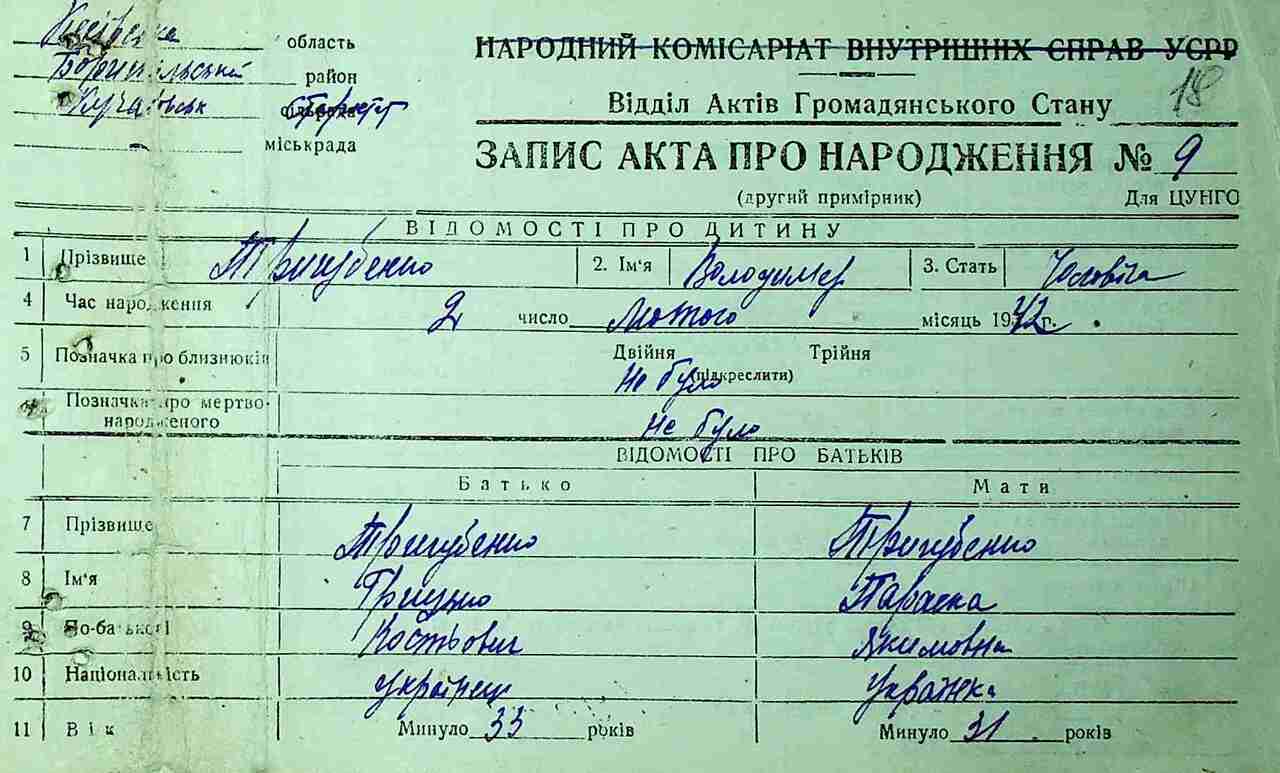 Київська область
Бориспільський район
старости
міськрада
НАРОДНИЙ КОМІСАРІАТ ВНУТРІШНІХ СПРАВ УСРР
18
Відділ Актів Громадянського Стану
ЗАПИС АКТА ПРО НАРОДЖЕННЯ № 9
(другий примірник) Для ЦУНГО
ВІДОМОСТІ ПРО ДИТИНУ
1 Прізвище Тригубенко 2. Ім'я Володимер 3. Стать Чоловіча
4 Час народження 2 число Лютого місяць 1942 г.
5 Позначка про близнюків Двійня Трійня
(підкреслити)
Не було
Позначка про мертвонародженого Не було
ВІДОМОСТІ ПРО БАТЬКІВ
Батько Мати
7 Прізвище Тригубенко Тригубенко
8 Ім'я Грицько Параска
9 По-батькові Костьович Якимовна
10 Національність Українец Українка
11 Вік Минуло 33 років Минуло 31 років